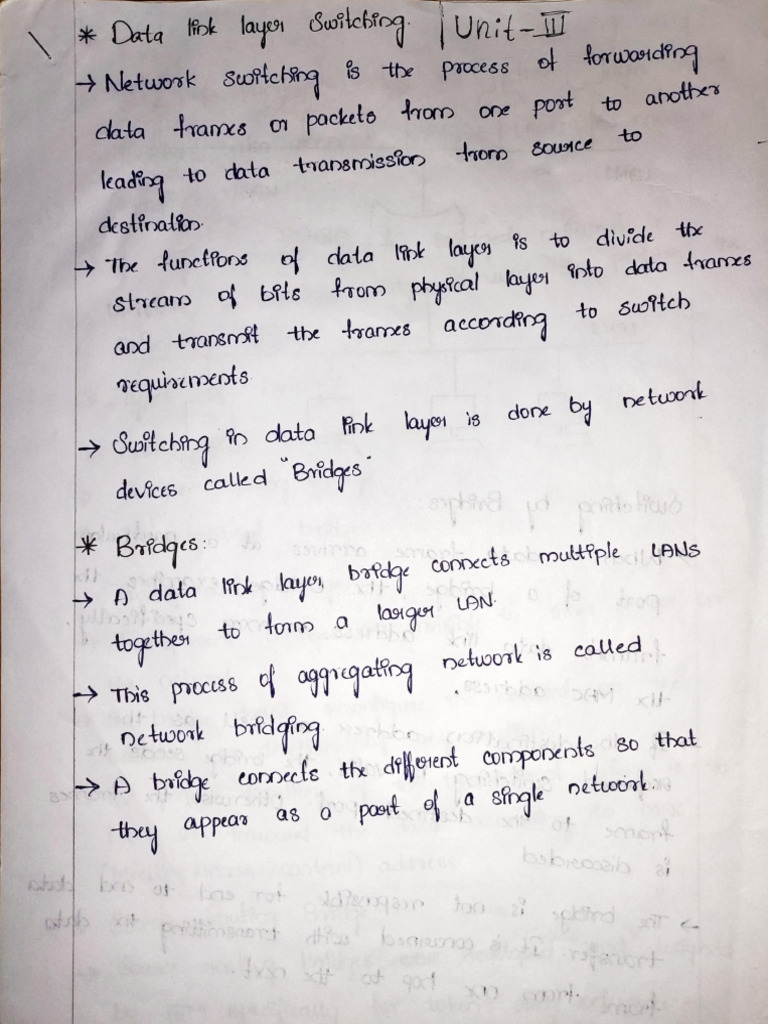 * Data link layer Switching. | Unit-III
→ Network switching is the process of forwarding
data frames or packets from one port to another
leading to data transmission from source to
destination.
→ The functions of data link layer is to divide the
stream of bits from physical layer into data frames
and transmit the frames according to switch
requirements.
→ Switching in data link layer is done by network
devices called "Bridges"
* Bridges:
→ A data link layer, bridge connects multiple LANs
together to form a larger LAN.
→ This process of aggregating network is called
network bridging.
→ A bridge connects the different components so that
they appear as a part of a single network.